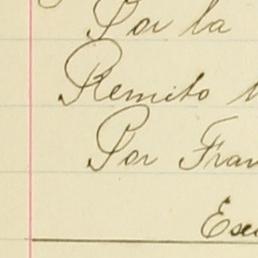 Por la
Remito
Por Fran
Esc